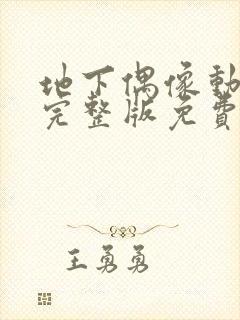 地下偶像動
完整版免費
王勇勇